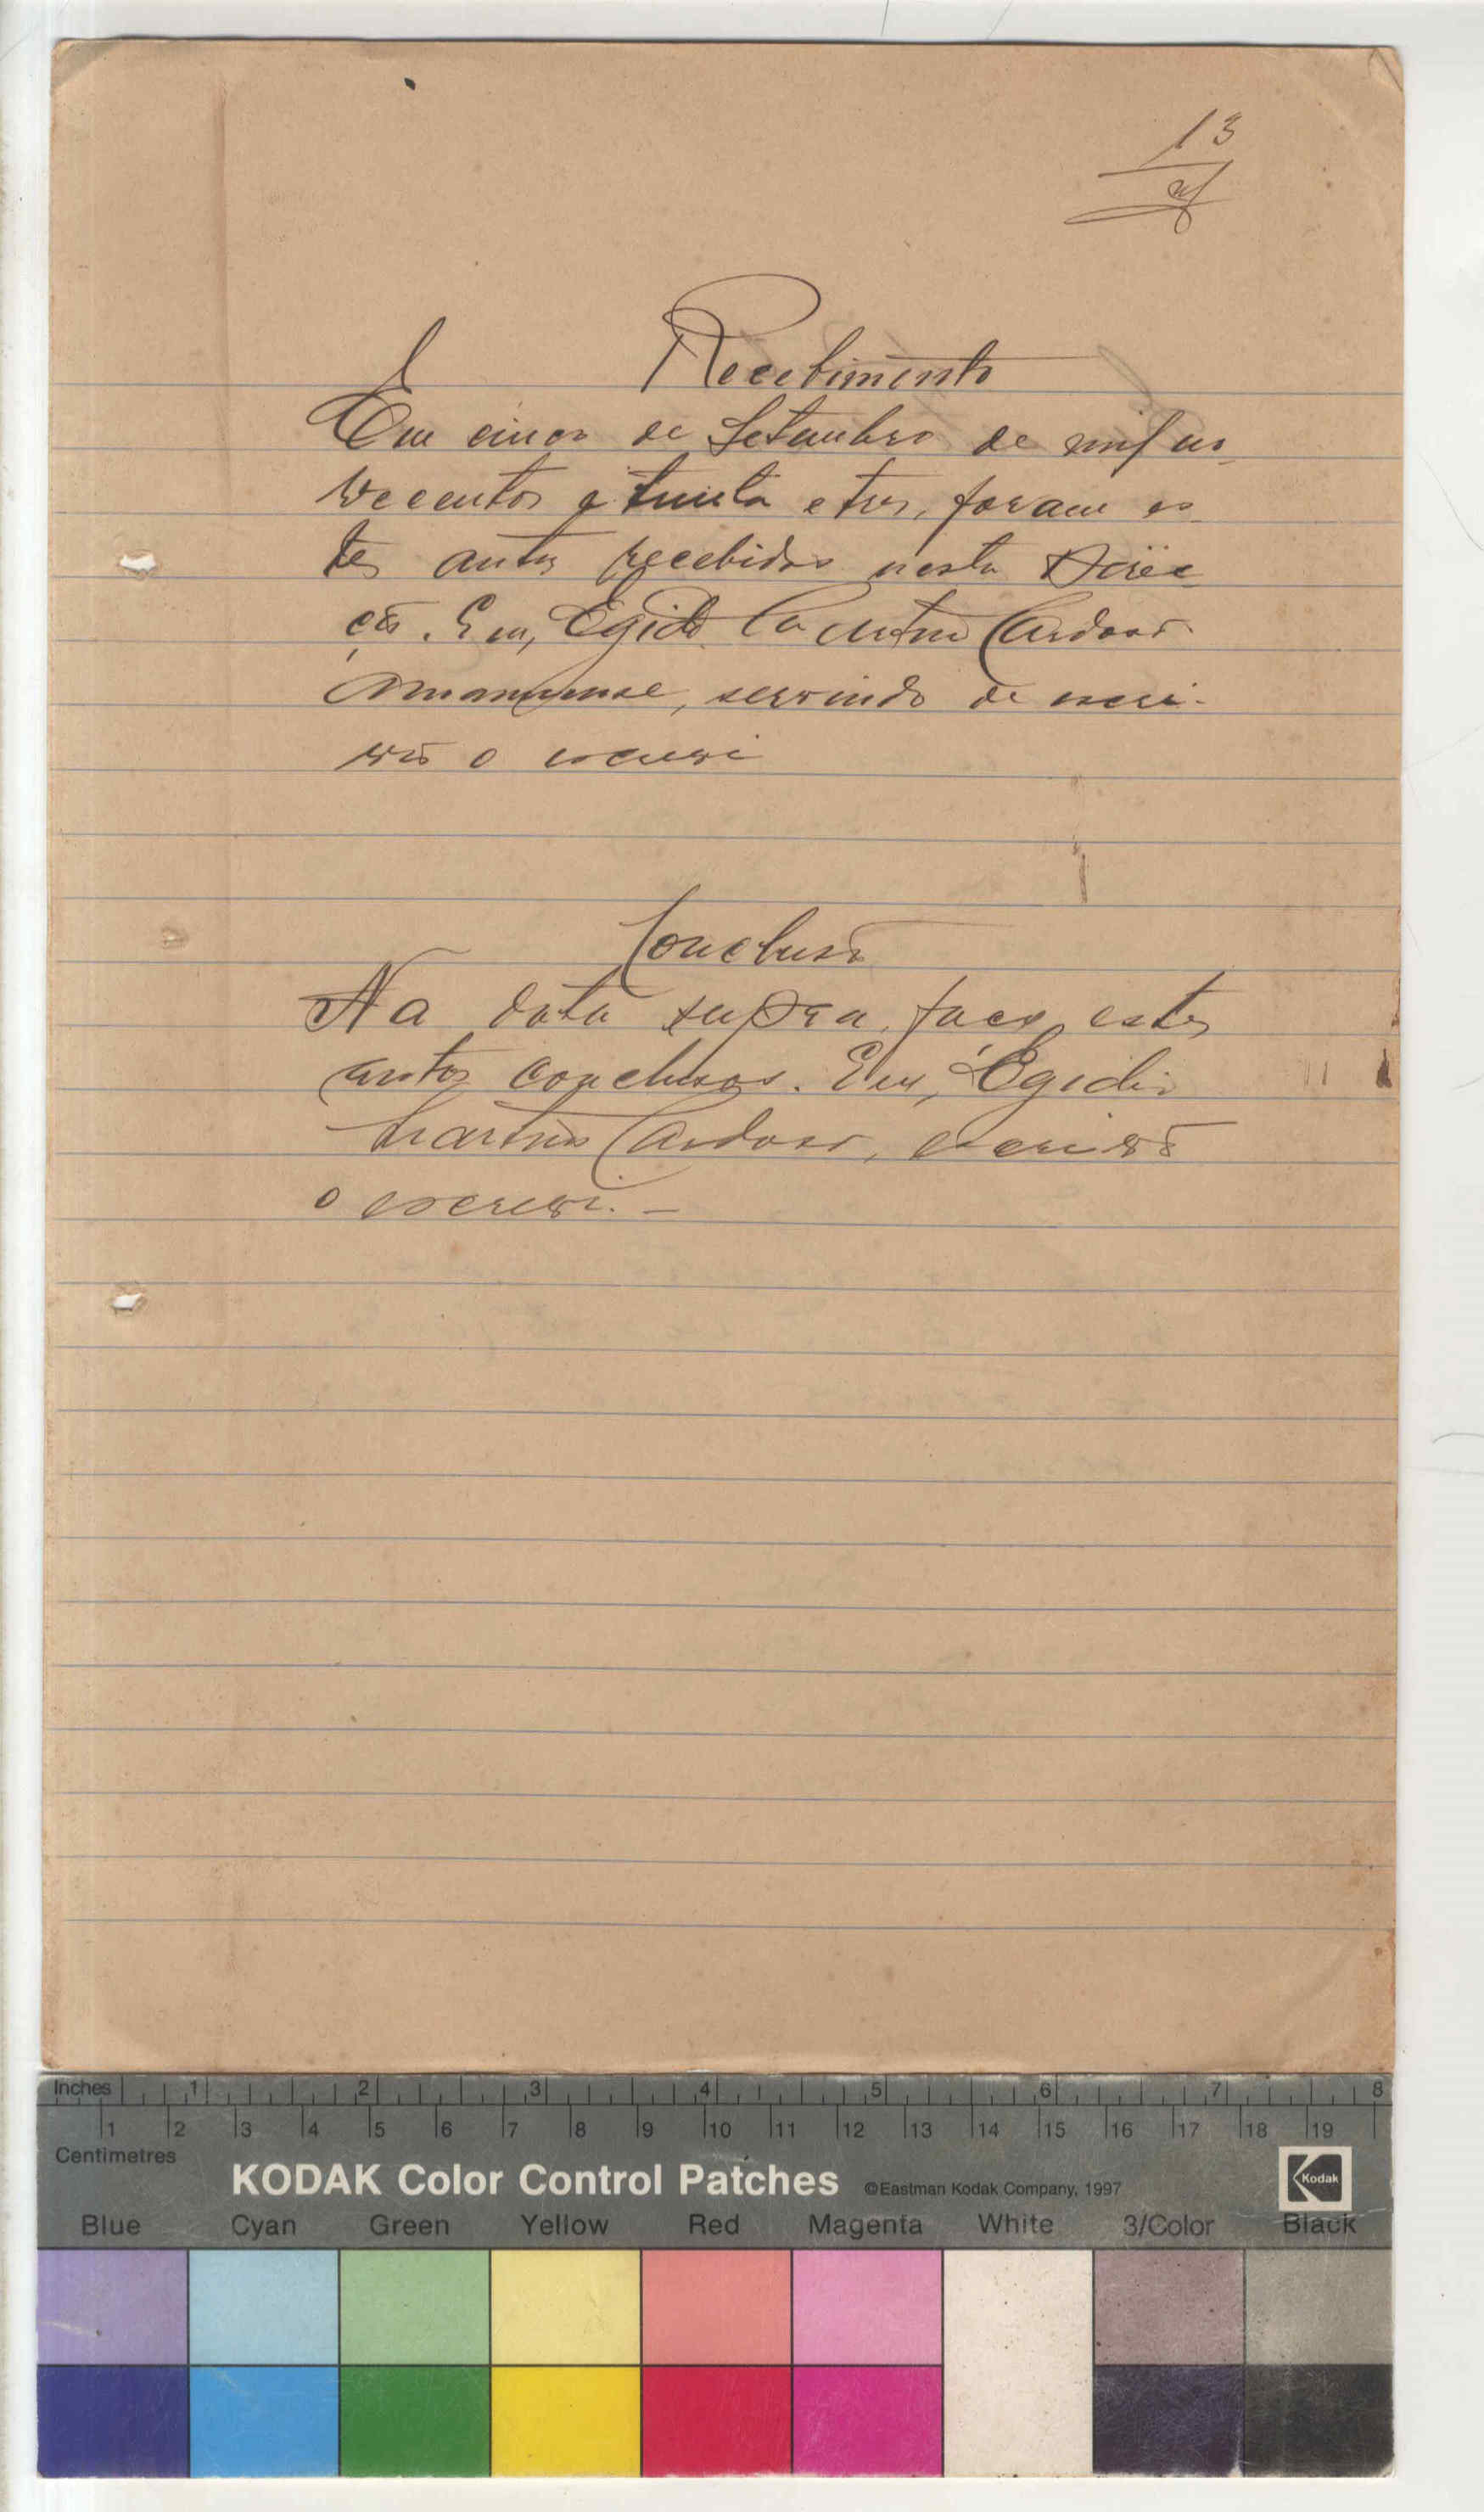 13
Recebimento
Em cinco de Setembro de mil no-
vecentos e trinta e tres, foram es-
tes autos recebidos nesta Direc-
ção. Eu, Egidio Martins Cardoso
Amanuense, servindo de escri-
vão o escrevi
Conclusão
Na data supra, faço estes
autos conclusos. Eu, Egidio
Martins Cardoso, escrivão
o escrevi. -
Inches 1 2 3 4 5 6 7 8
1 2 3 4 5 6 7 8 9 10 11 12 13 14 15 16 17 18 19
Centimetres
KODAK Color Control Patches ©Eastman Kodak Company, 1997 Kodak
Blue Cyan Green Yellow Red Magenta White 3/Color Black